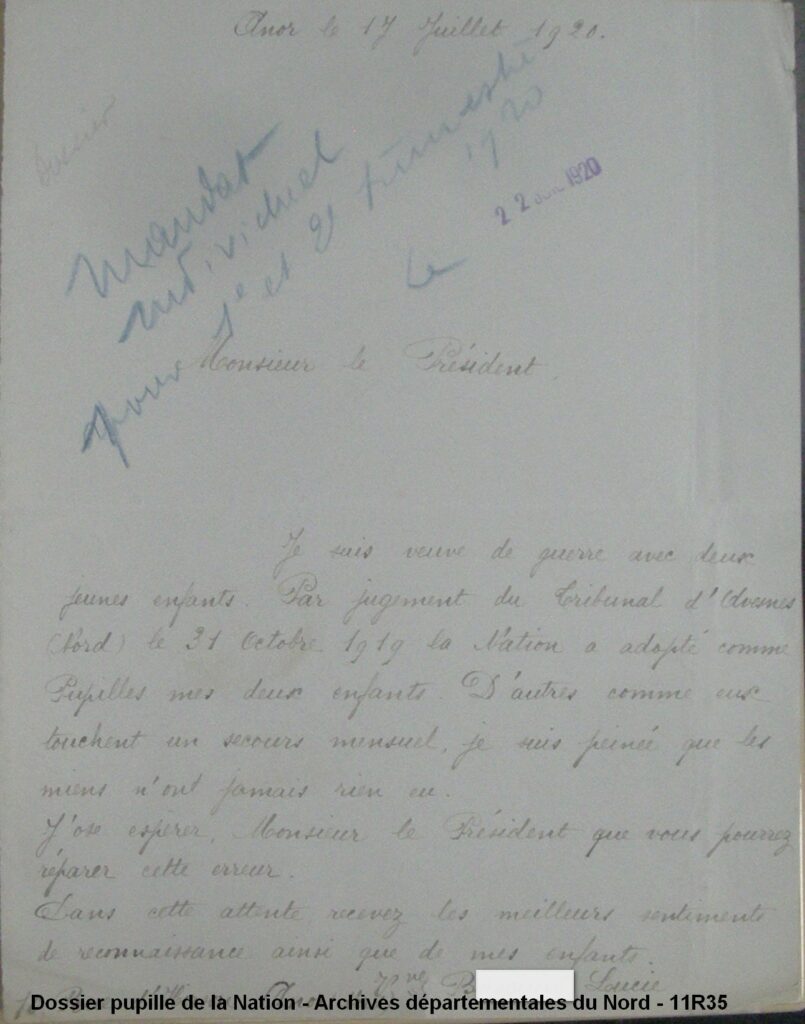 Anor le 17 Juillet 1920.
Dossier
Mandat
individuel
pour 1e et 2e trimestre
1920
Le
22 1920
Monsieur le Président
Je suis veuve de guerre avec deux
jeunes enfants. Par jugement du Tribunal d'Avesnes
(Nord) le 31 Octobre 1919 la Nation a adopté comme
Pupilles mes deux enfants. D'autres comme eux
touchent un secours mensuel, je suis peinée que les
miens n'ont jamais rien eu.
J'ose espérer, Monsieur le Président que vous pourrez
réparer cette erreur.
Dans cette attente recevez les meilleurs sentiments
de reconnaissance ainsi que de mes enfants.
Vve B Lucie
Dossier pupille de la Nation - Archives départementales du Nord - 11R35